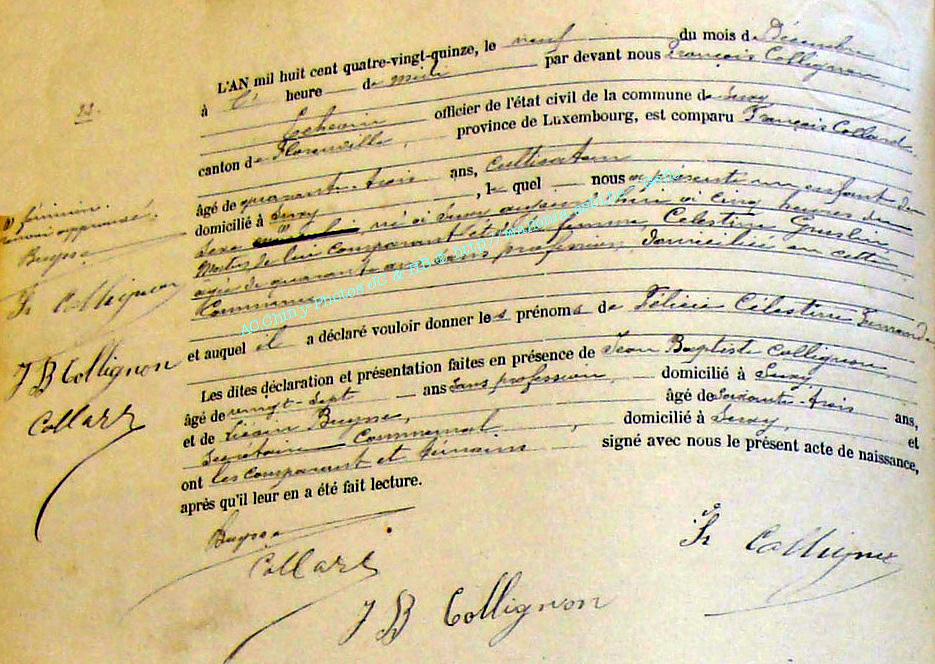 L'AN mil huit cent quatre-vingt-quinze, le neuf du mois de Décembre
à heure de midi par devant nous François Collignon
Echevin officier de l'état civil de la commune de Suxy
canton de Florenville, province de Luxembourg, est comparu François Collard
âgé de quarante-trois ans, cultivateur
domicilié à Suxy, le quel nous a présenté un enfant du
sexe né à Suxy aujourd'hui à cinq heures du
Matin de lui comparant et de sa femme Célestine
âgée de quarante ans sans profession, domiciliée en cette
Commune
et auquel il a déclaré vouloir donner les prénoms de Félicie Célestine Fernande
Les dites déclaration et présentation faites en présence de Jean Baptiste Collignon
âgé de vingt-sept ans sans profession, domicilié à Suxy
et de Buysse, âgé de soixante-trois ans,
Secrétaire Communal, domicilié à Suxy, et
ont les comparant et témoins signé avec nous le présent acte de naissance,
après qu'il leur en a été fait lecture.
33.
féminin.
approuvé.
Buysse
Fr Collignon
J B Collignon
Collard
Buysse
Collard
J B Collignon
Fr Collignon
AC Chiny Photos JC &